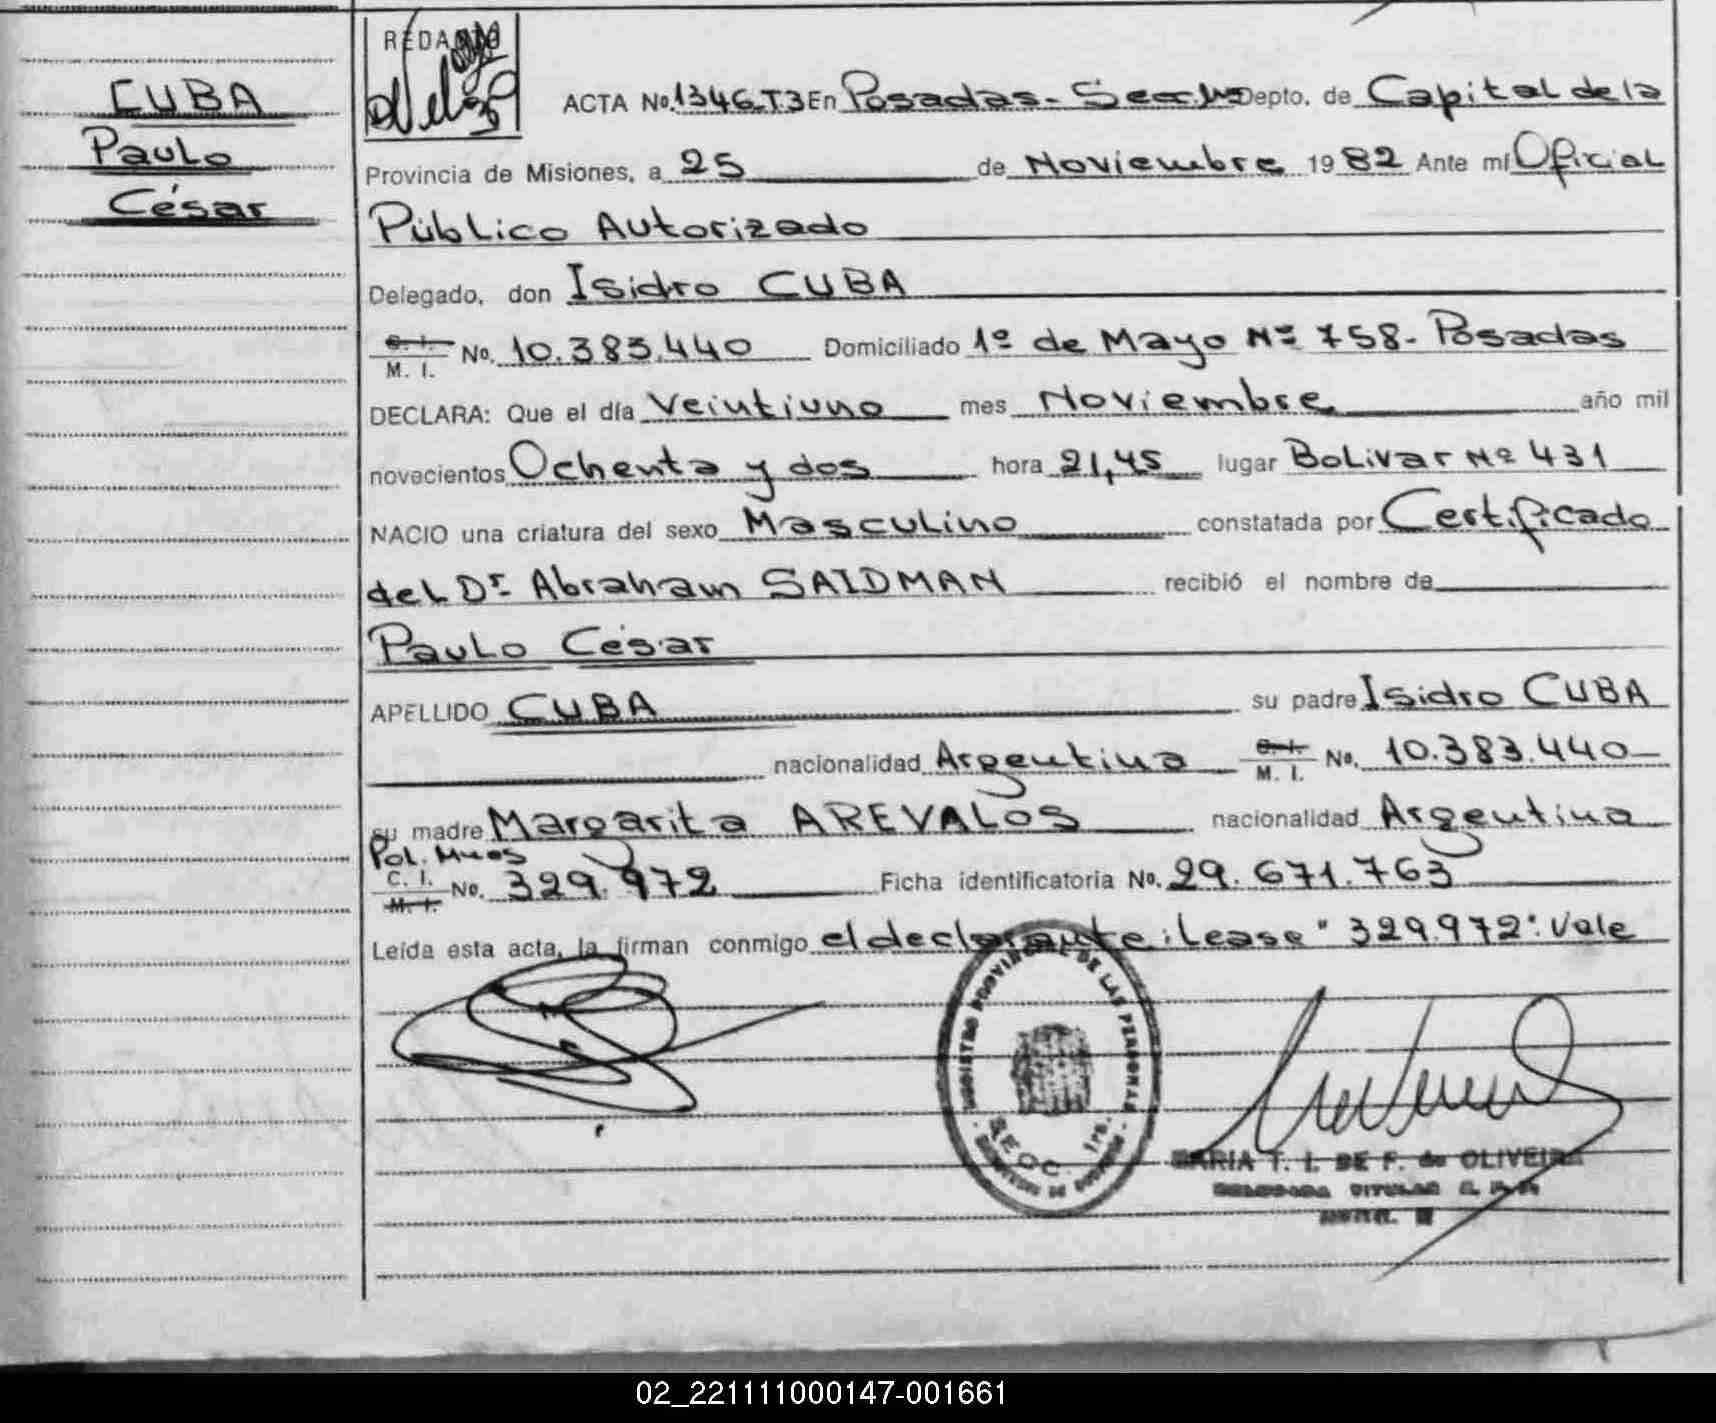 CUBA
Paulo
César
REDACTÓ
ACTA No. 1346.T3 En Posadas - Depto. de Capital de la
Provincia de Misiones, a 25 de Noviembre 1982 Ante mí Oficial
Público Autorizado
Delegado, don Isidro CUBA
C. I. M. I. No. 10.383.440 Domiciliado 1º de Mayo Nº 758 - Posadas
DECLARA: Que el día Veintiuno mes Noviembre año mil
novecientos Ochenta y dos hora 21,45 lugar Bolivar Nº 431
NACIO una criatura del sexo Masculino constatada por Certificado
del Dr Abraham SAIDMAN recibió el nombre de
Paulo César
APELLIDO CUBA su padre Isidro CUBA
nacionalidad Argentina C. I. M. I. No. 10.383.440
su madre Margarita AREVALOS nacionalidad Argentina
Pol. Mnes
C. I. M. I. No. 329.972 Ficha identificatoria No. 29.671.763
Leída esta acta, la firman conmigo el declarante: Lease "329.972": Vale
REGISTRO PROVINCIAL DE LAS PERSONAS
MARIA T. I. DE F. de OLIVEIRA
02_221111000147-001661